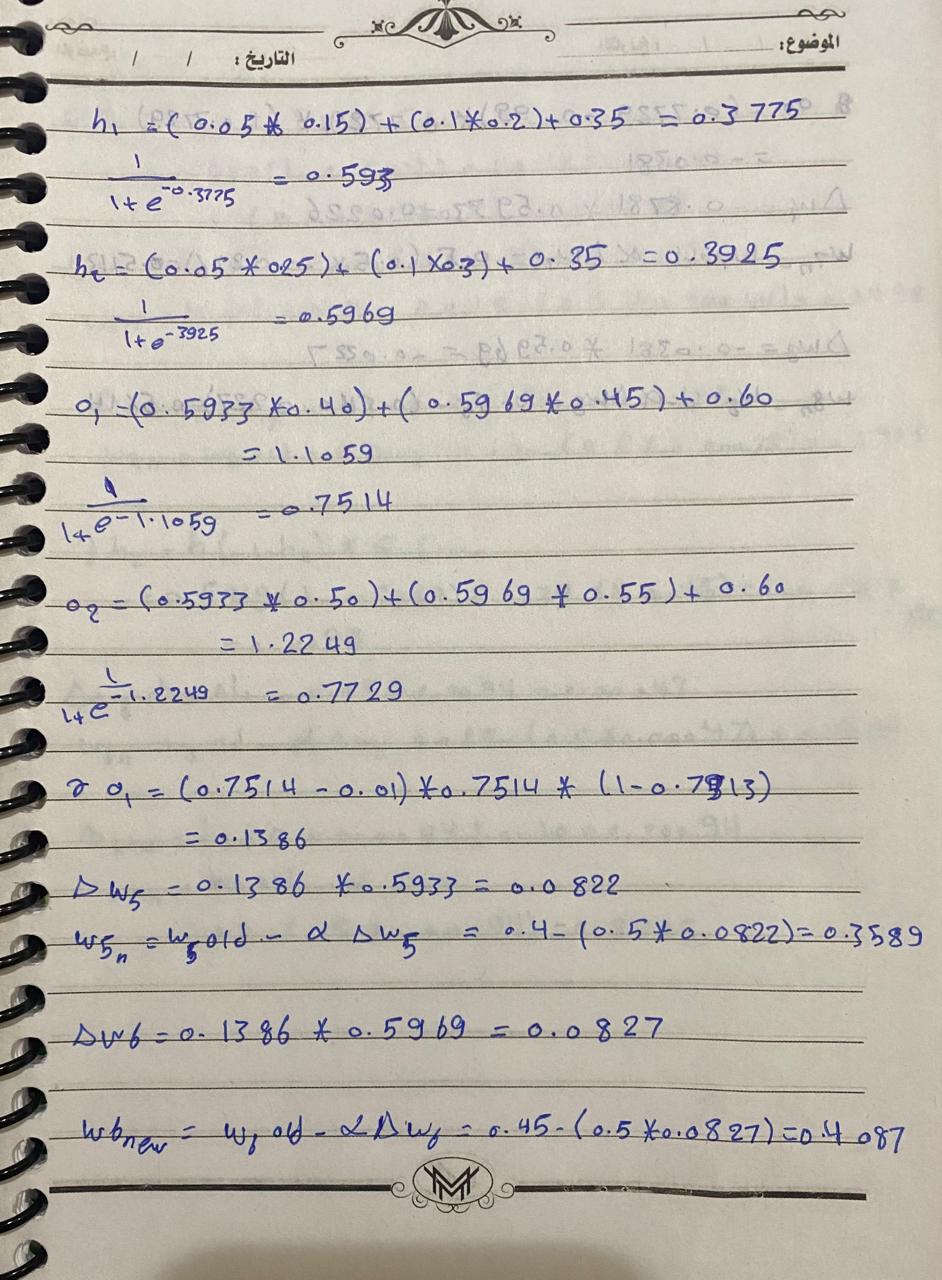 الموضوع:
التاريخ: / /
h₁ = (0.05 * 0.15) + (0.1 * 0.2) + 0.35 = 0.3775
1 / 1+e^-0.3775 = 0.593
h₂ = (0.05 * 025) + (0.1 × 0.3) + 0.35 = 0.3925
1 / 1+e^-3925 = 0.5969
o₁ = (0.5933 * 0.40) + (0.5969 * 0.45) + 0.60
= 1.1059
1 / 1+e^-1.1059 = 0.7514
o₂ = (0.5933 * 0.50) + (0.5969 * 0.55) + 0.60
= 1.2249
1 / 1+e^-1.2249 = 0.7729
o₁ = (0.7514 - 0.01) * 0.7514 * (1-
= 0.1386
Δw₅ = 0.1386 * 0.5933 = 0.0822
w5ₙ = w₅old - α Δw₅ = 0.4 - (0.5 * 0.0822) = 0.3589
Δw6 = 0.1386 * 0.5969 = 0.0827
w6new = w₆ old - α Δw₆ = 0.45 - (0.5 * 0.0827) = 0.4087